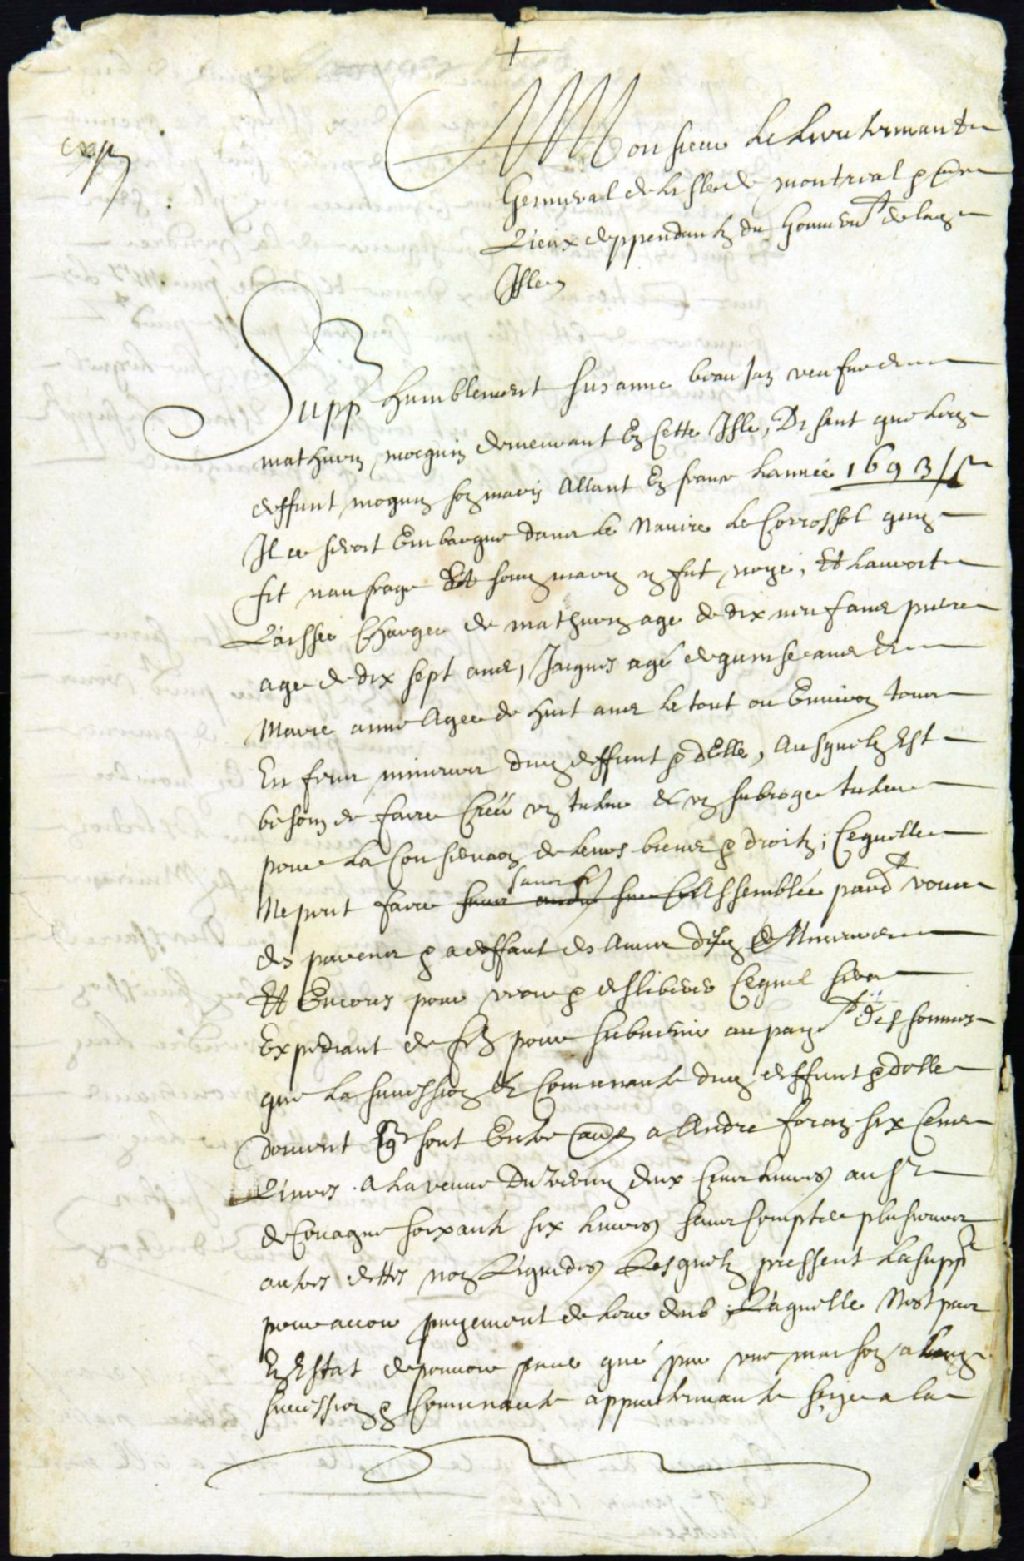 Monsieur Le Lieutermant
Genneral de Lisle de montrial &
Lieux deppendants du Gouver^t de lad
Isle
Supp humblement susanne beaujan veufue de
mathurin moquin demeurant En Cette Isle, Disant que led
deffunt moquin son mary Allant En france Lannée 1693
Il se seroit Embarque dans le Navire Le Corrossol qui
fit naufrage Et son mary y fut noyé, Et Lauroit
Laissée Chargee de mathurin age de dix neuf ans pierre
age de dix sept ans, Jacques agé de quinse ans Et
Marie anne Agee de huit ans Le tout ou Environ tous
Enfens mineurs dud deffunt & delle, Ausquels Est
besoin de faire Créer un tuteur Et un subroge tuteur
pour La Conservaon de leurs biens & droits, Cequelle
Ne peut faire sans Assemblée pard^t vous
des parens & adeffaut des Amis desd Mineurs
Et Encores pour & deslibérer Cequil sera
Expediant de f^e pour subvenir au paye^t des sommes
que La succession Et Communaute dud deffunt & delle
doivent q sont Entre au^es a Andre foran six Cens
Livres A La veuve deux Cens Livres au s^r
de Couagne soixante six Livres sans Compter plusieurs
autres dettes non Liquides Lesquels pressent La supp^te
pour avoir payement de leur deub Laquelle Nest pas
En Estat de pouvoir que par une maison a lad
succession & Communaute appartenante size a la